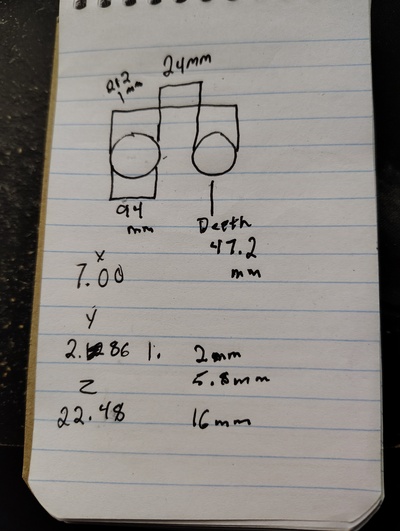 24mm
212 mm
94 mm
Depth
47.2
mm
x
7.00
y
2. 86 1. 2mm
z 5.8mm
22.48 16mm